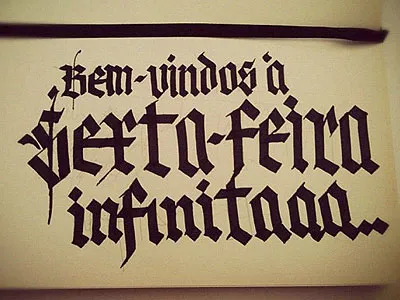 Bem-vindos à
Sexta-feira
infinitaaa...